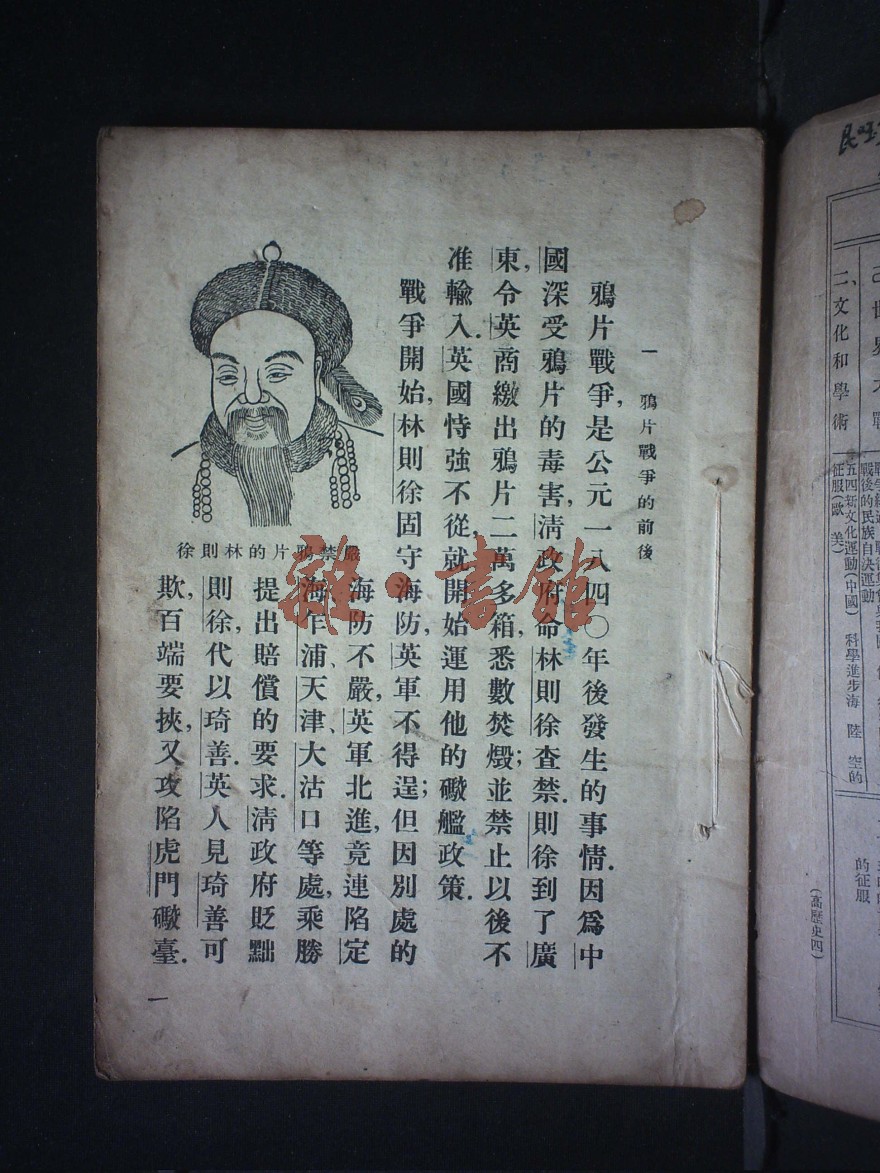 一 鴉片戰爭的前後
鴉片戰爭,是公元一八四〇年後發生的事情.因爲中
國深受鴉片的毒害,淸政府命林則徐查禁.則徐到了廣
東,令英商繳出鴉片二萬多箱,悉數焚燬;並禁止以後不
准輸入.英國恃強不從,就開始運用他的礮艦政策.
戰爭開始,林則徐固守海防,英軍不得逞;但因別處的
海防不嚴,英軍北進,竟連陷定
海、乍浦、天津、大沽口等處,乘勝
提出賠償的要求.淸政府貶黜
則徐,代以琦善.英人見琦善可
欺,百端要挾,又攻陷虎門礮臺.
嚴禁鴉片的林則徐
一
雜·書館
二、文化和學術
五四新文化運動(中國) 科學進步海 陸 空的
征服(歐 美)
戰後的民族自決運動
的征服
(高歷史四)